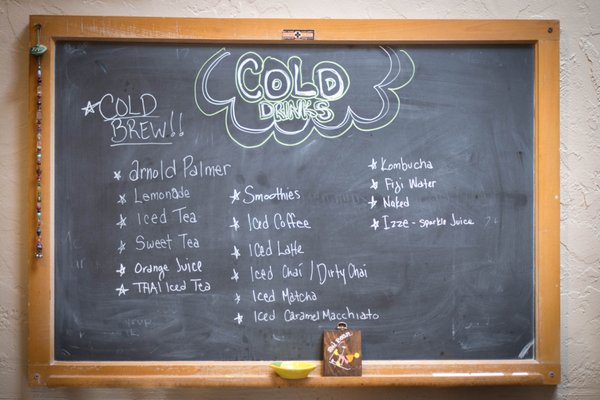 COLD DRINKS
COLD BREW!!
Arnold Palmer
Lemonade
Iced Tea
Sweet Tea
Orange Juice
THAI Iced Tea
Smoothies
Iced Coffee
Iced Latte
Iced Chai / Dirty Chai
Iced Matcha
Iced Caramel Macchiato
Kombucha
Fiji Water
Naked
Izze - sparkle Juice